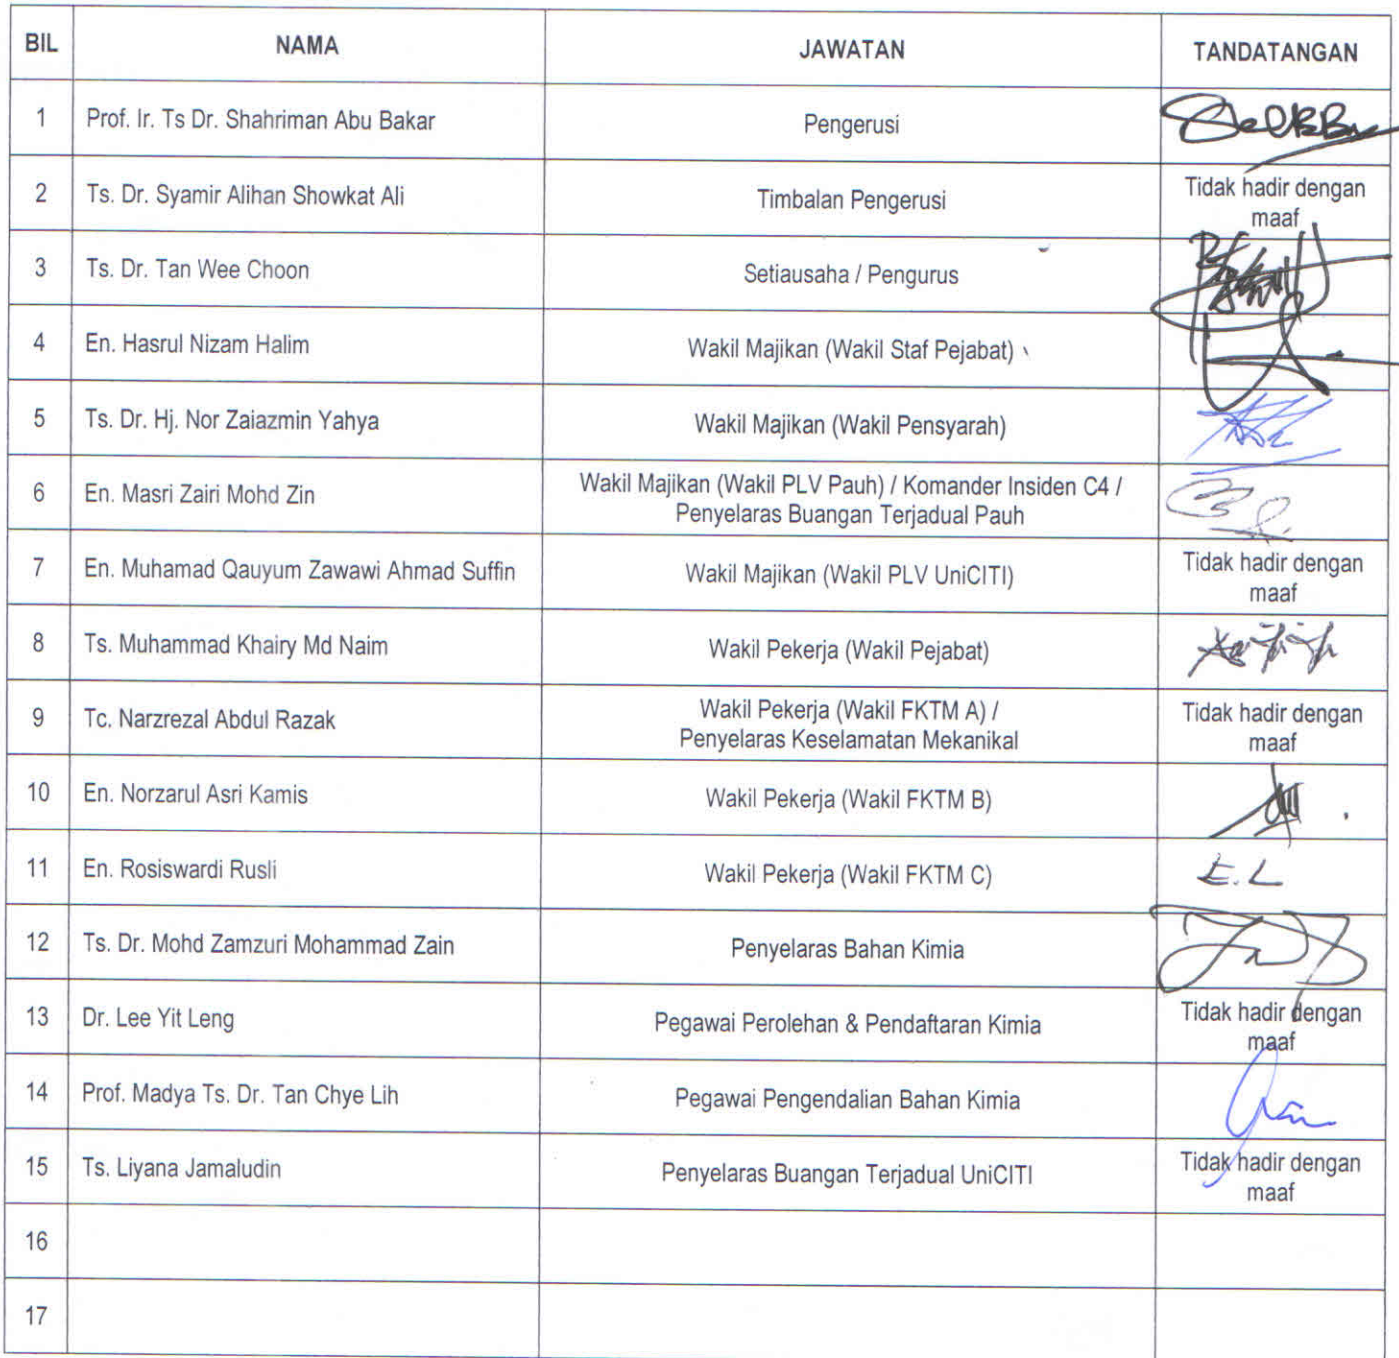 BIL NAMA JAWATAN TANDATANGAN
1 Prof. Ir. Ts Dr. Shahriman Abu Bakar Pengerusi
2 Ts. Dr. Syamir Alihan Showkat Ali Timbalan Pengerusi Tidak hadir dengan
maaf
3 Ts. Dr. Tan Wee Choon Setiausaha / Pengurus
4 En. Hasrul Nizam Halim Wakil Majikan (Wakil Staf Pejabat)
5 Ts. Dr. Hj. Nor Zaiazmin Yahya Wakil Majikan (Wakil Pensyarah)
6 En. Masri Zairi Mohd Zin Wakil Majikan (Wakil PLV Pauh) / Komander Insiden C4 /
Penyelaras Buangan Terjadual Pauh
7 En. Muhamad Qauyum Zawawi Ahmad Suffin Wakil Majikan (Wakil PLV UniCITI) Tidak hadir dengan
maaf
8 Ts. Muhammad Khairy Md Naim Wakil Pekerja (Wakil Pejabat)
9 Tc. Narzrezal Abdul Razak Wakil Pekerja (Wakil FKTM A) / Tidak hadir dengan
Penyelaras Keselamatan Mekanikal maaf
10 En. Norzarul Asri Kamis Wakil Pekerja (Wakil FKTM B)
11 En. Rosiswardi Rusli Wakil Pekerja (Wakil FKTM C) E.L
12 Ts. Dr. Mohd Zamzuri Mohammad Zain Penyelaras Bahan Kimia
13 Dr. Lee Yit Leng Pegawai Perolehan & Pendaftaran Kimia Tidak hadir dengan
maaf
14 Prof. Madya Ts. Dr. Tan Chye Lih Pegawai Pengendalian Bahan Kimia
15 Ts. Liyana Jamaludin Penyelaras Buangan Terjadual UniCITI Tidak hadir dengan
maaf
16
17